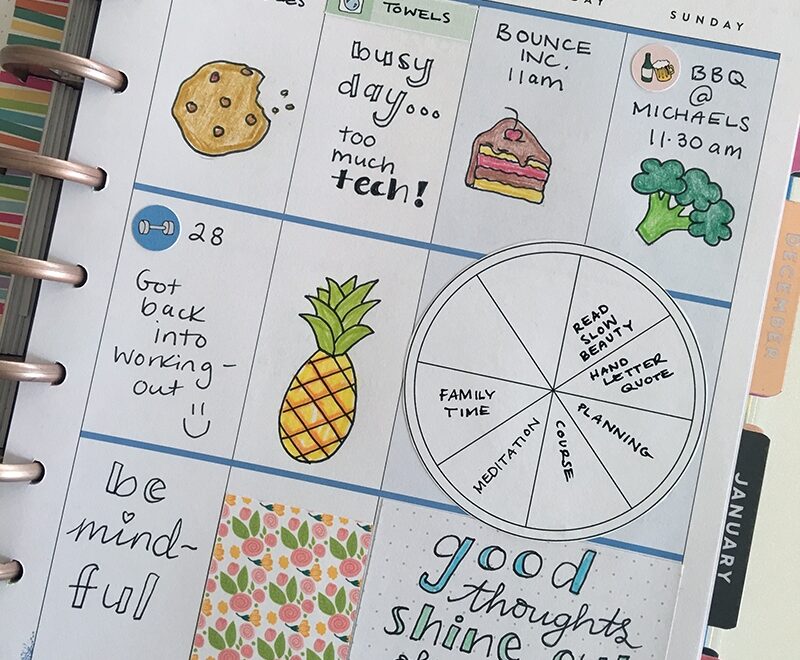 TOWELS
SUNDAY
busy
day...
too
much
tech!
BOUNCE
INC.
11am
BBQ
@
MICHAELS
11.30 am
28
Got
back
into
working-
out
READ
SLOW
BEAUTY
HAND
LETTER
QUOTE
PLANNING
COURSE
MEDITATION
FAMILY
TIME
be
mind-
ful
good
thoughts
shine
DECEMBER
JANUARY